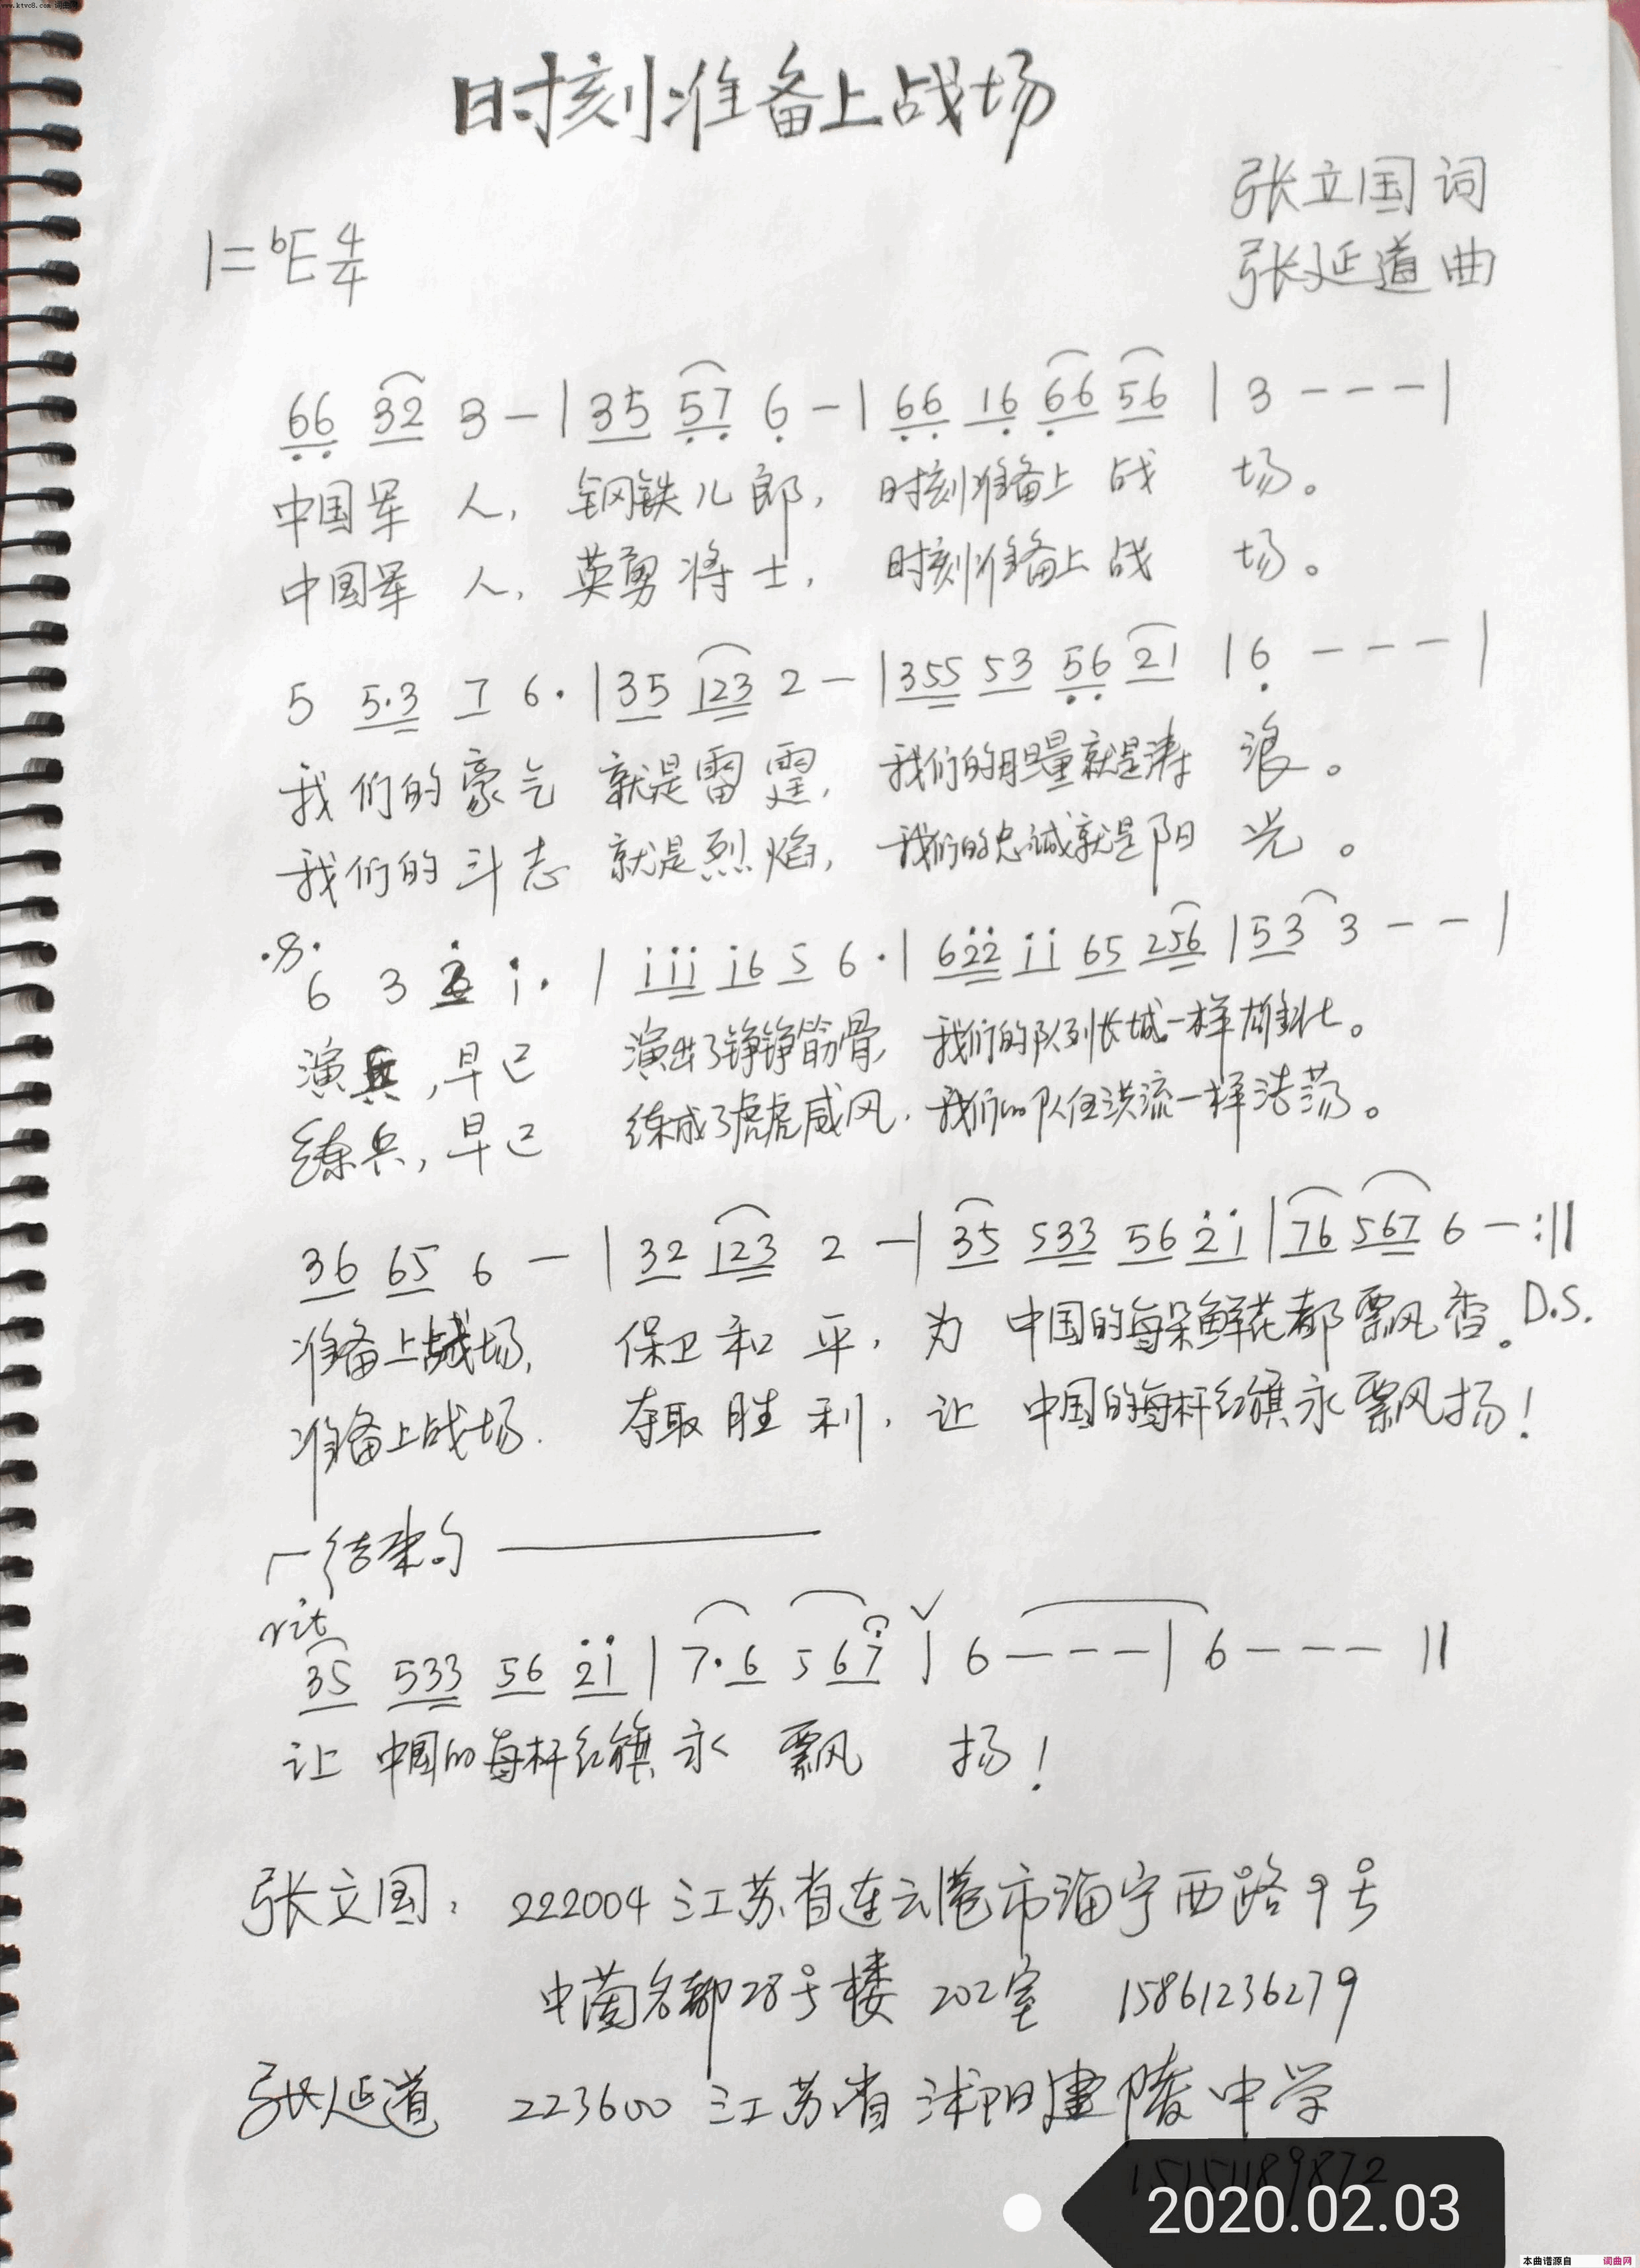 www.ktvc8.com-词曲网
时刻准备上战场
张立国 词
1=bE 4/4
张延道 曲
66 32 3 - | 35 57 6 - | 66 16 66 56 | 3 - - - |
中国军 人, 钢铁儿郎, 时刻准备上 战 场。
中国军 人, 英勇将士, 时刻准备上 战 场。
5 5·3 7 6· | 35 123 2 - | 355 53 56 21 | 6 - - - |
我们的豪气 就是雷霆, 我们的胆量就是涛 浪。
我们的斗志 就是烈焰, 我们的忠诚就是阳 光。
6 3 2 i· | iii i6 5 6· | 622 ii 65 256 | 53 3 - - |
演兵,早已 演出了铮铮筋骨, 我们的队列长城一样雄壮。
练兵,早已 练成了虎虎威风, 我们的队伍洪流一样浩荡。
36 65 6 - | 32 123 2 - | 35 533 56 2i | 76 567 6 - :||
准备上战场, 保卫和平, 为 中国的每朵鲜花都飘香。 D.S.
准备上战场. 夺取胜利, 让 中国的每杆红旗永飘扬!
结束句
rit
35 533 56 2i | 7·6 5 67 | 6 - - - | 6 - - - ||
让 中国的每杆红旗 永 飘 扬!
张立国: 222004 江苏省连云港市海宁西路9号
中茵名都28号楼 202室 15861236279
张延道 223600 江苏省沭阳建陵中学
15151189872
2020.02.03
本曲谱源自 词曲网